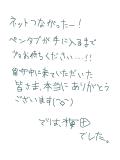 ネットつながったー！
ペンタブが手に入るまで
少々お待ちください…!!
留守中に来ていただいた
皆さま、本当にありがとう
ございます(^o^)
では、
でした。